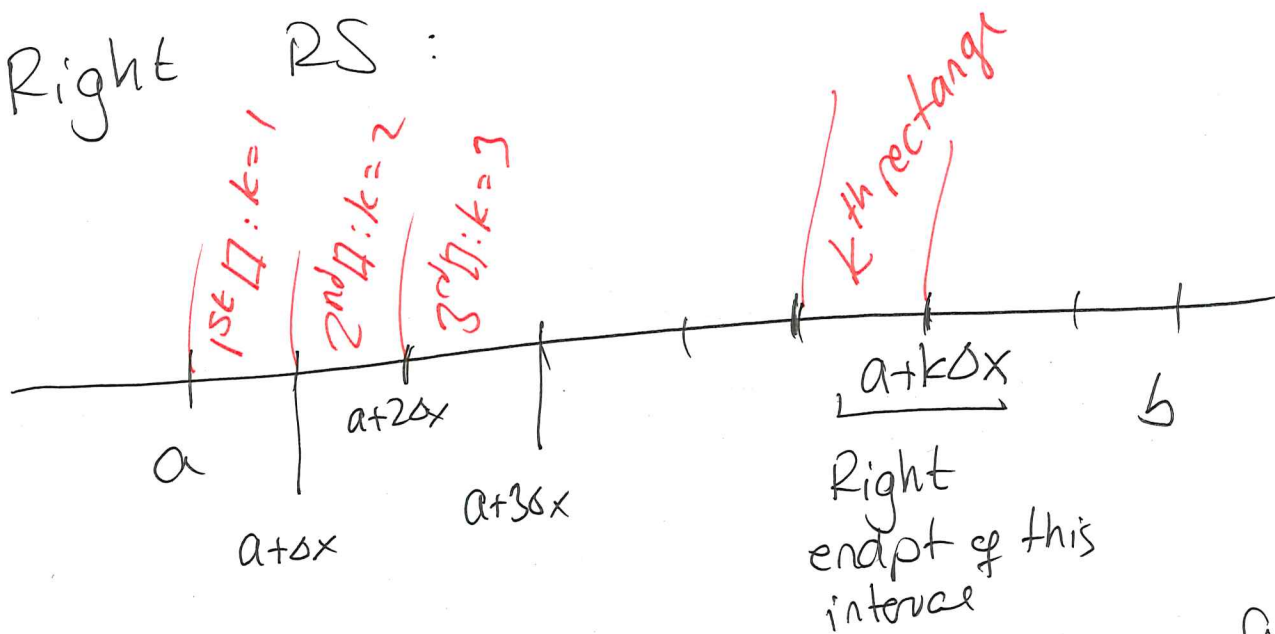 Right RS :
1st □ : k=1
2nd □ : k=2
3rd □ : k=3
kth rectangl
a
a+Δx
a+2Δx
a+3Δx
a+kΔx
b
Right
endpt of this
interval